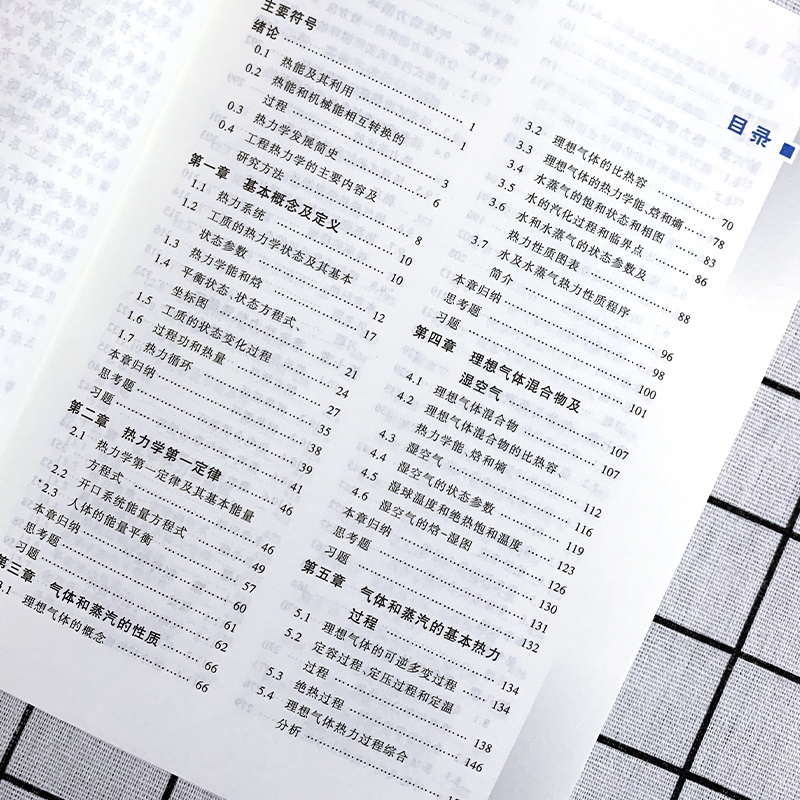 目录
主要符号
绪论 1
0.1 热能及其利用 1
0.2 热能和机械能相互转换的
过程 3
0.3 热力学发展简史 6
0.4 工程热力学的主要内容及
研究方法 8
第一章 基本概念及定义 10
1.1 热力系统 10
1.2 工质的热力学状态及其基本
状态参数 12
1.3 热力学能和焓 17
1.4 平衡状态、状态方程式、
坐标图 21
1.5 工质的状态变化过程 24
1.6 过程功和热量 27
1.7 热力循环 35
本章归纳 38
思考题 39
习题 41
第二章 热力学第一定律 46
2.1 热力学第一定律及其基本能量
方程式 46
2.2 开口系统能量方程式 49
2.3 人体的能量平衡 57
本章归纳 60
思考题 61
习题 62
第三章 气体和蒸汽的性质 66
3.1 理想气体的概念 66
3.2 理想气体的比热容 70
3.3 理想气体的热力学能、焓和熵 78
3.4 水蒸气的饱和状态和相图 83
3.5 水的汽化过程和临界点 86
3.6 水和水蒸气的状态参数及
热力性质图表 88
3.7 水及水蒸气热力性质程序
简介 96
本章归纳 98
思考题 100
习题 101
第四章 理想气体混合物及
湿空气 107
4.1 理想气体混合物 107
4.2 理想气体混合物的比热容、
热力学能、焓和熵 112
4.3 湿空气 116
4.4 湿空气的状态参数 119
4.5 湿球温度和绝热饱和温度 123
4.6 湿空气的焓-湿图 126
本章归纳 130
思考题 131
习题 132
第五章 气体和蒸汽的基本热力
过程 134
5.1 理想气体的可逆多变过程 134
5.2 定容过程、定压过程和定温
过程 138
5.3 绝热过程 146
5.4 理想气体热力过程综合
分析